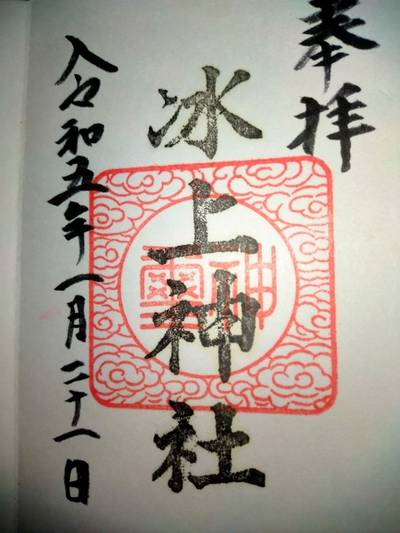 奉拝
氷上神社
令和五年一月二十一日